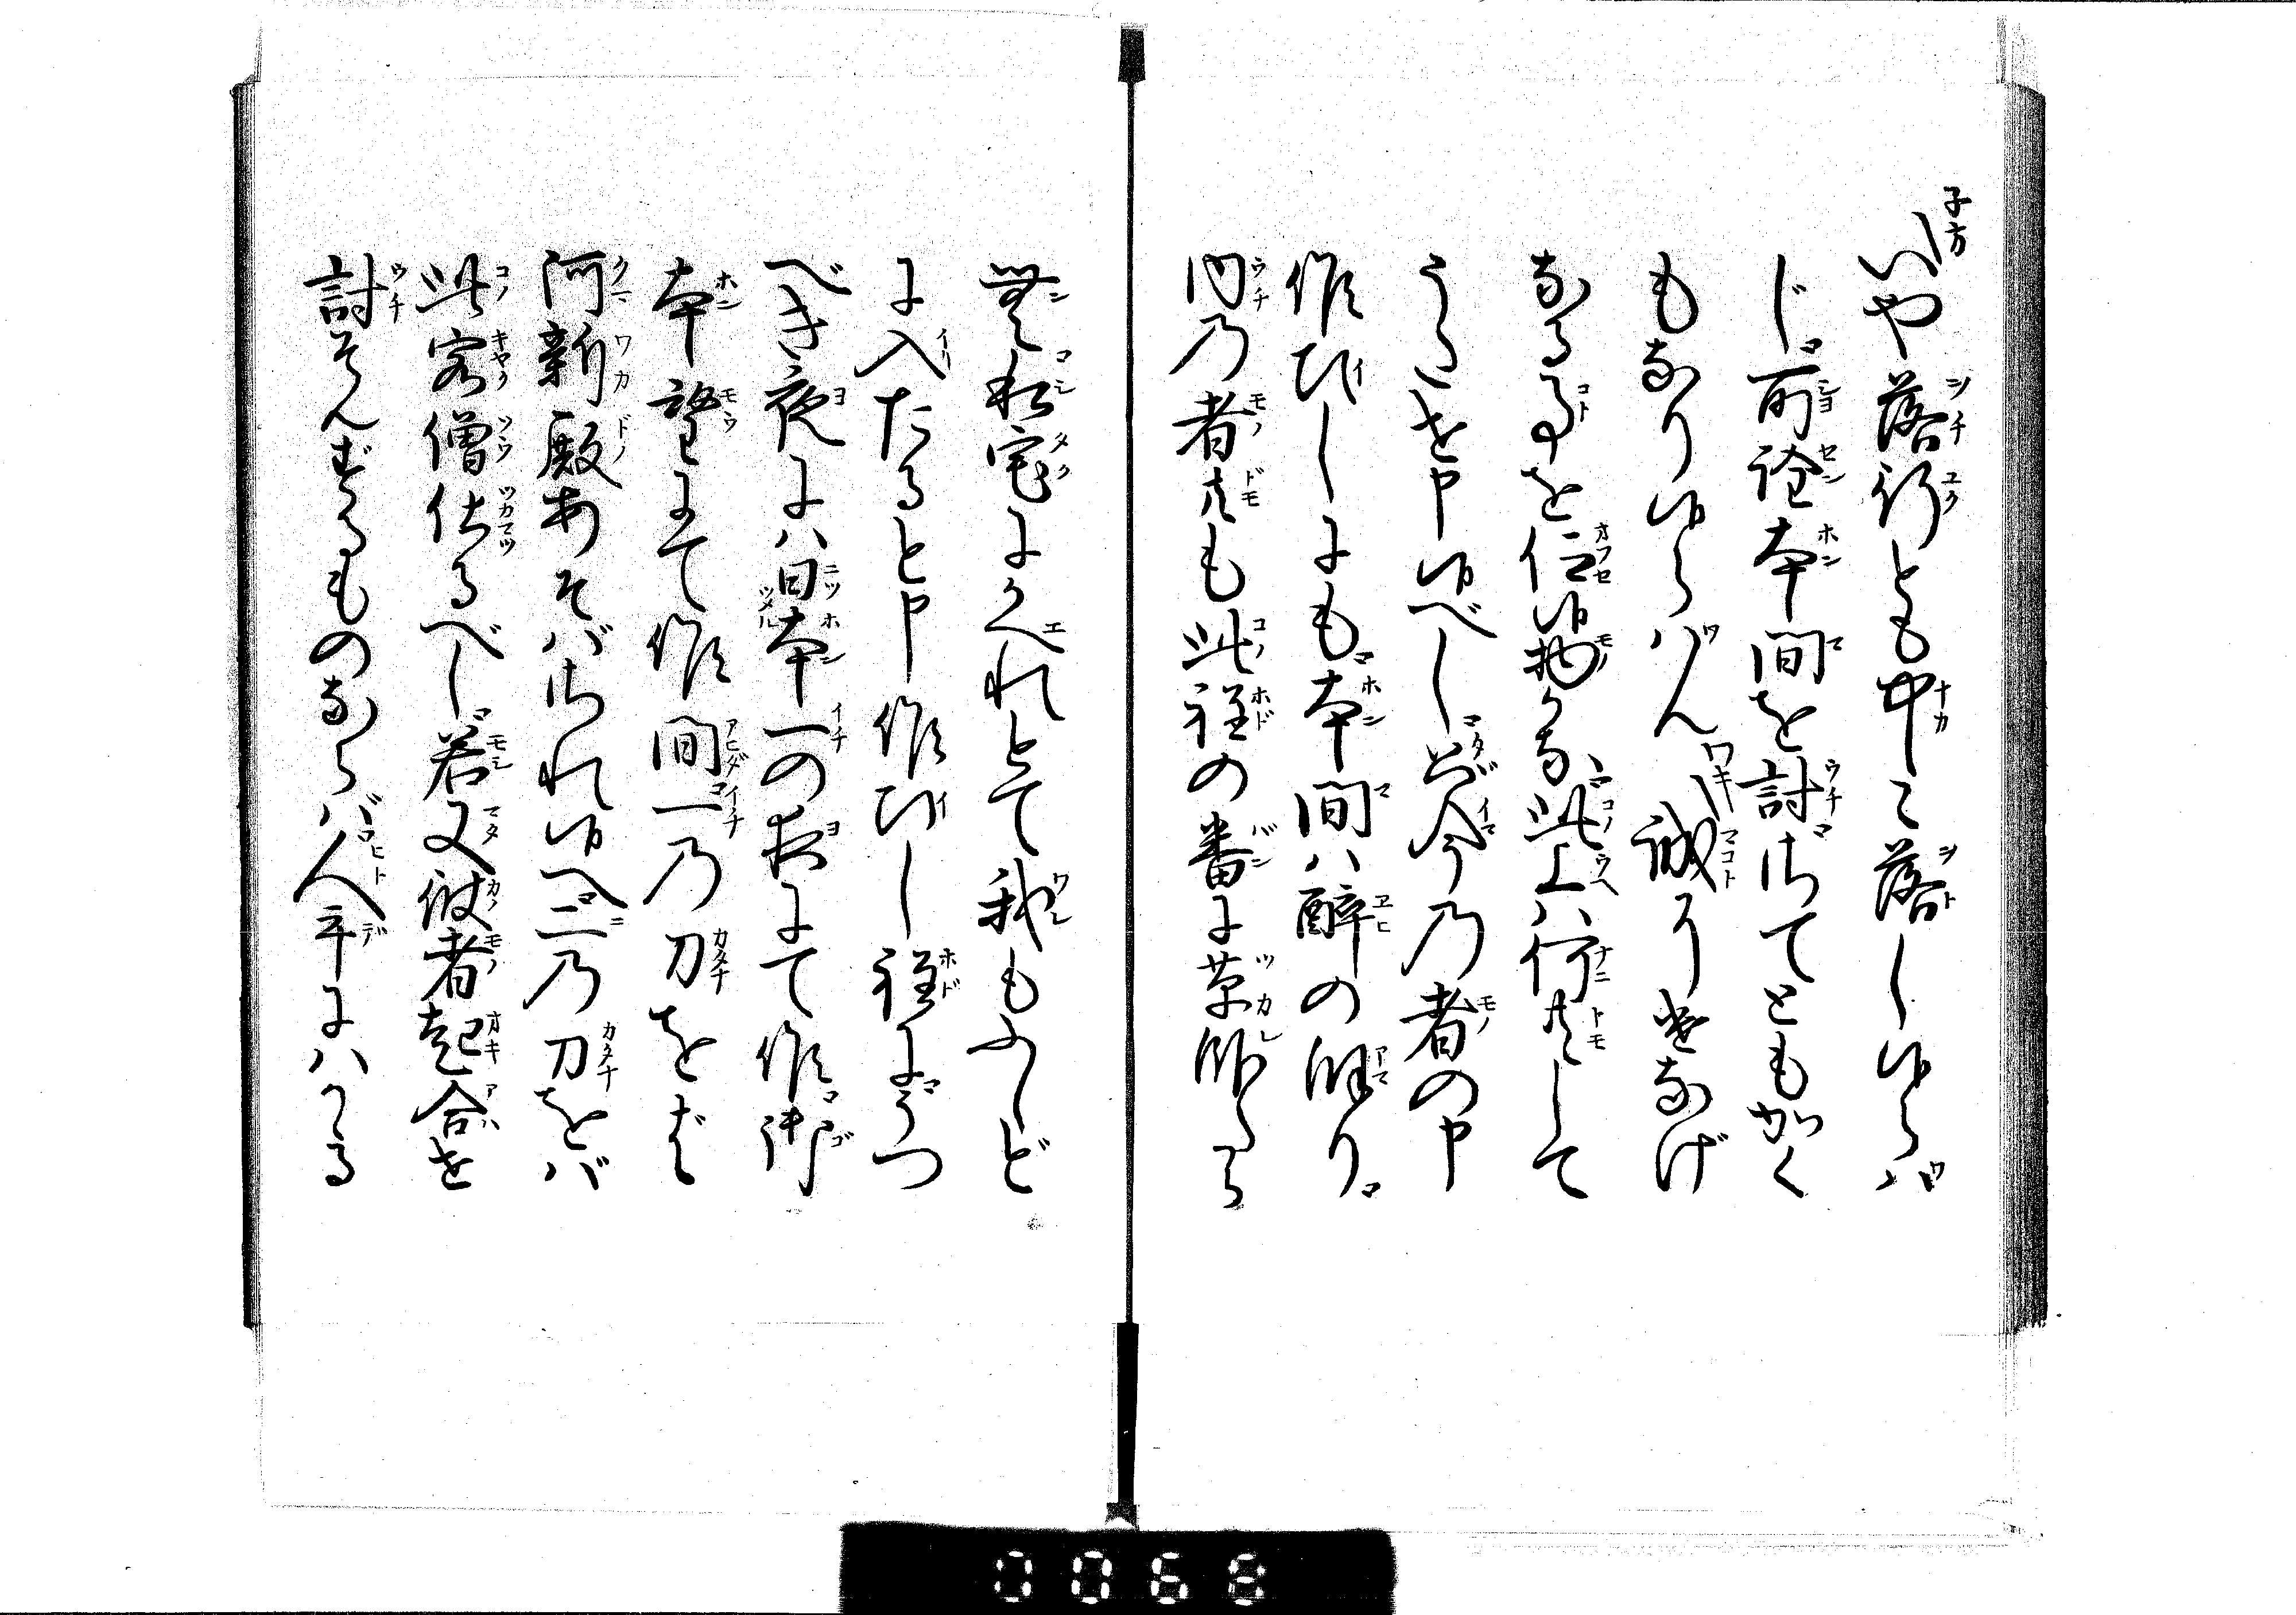 子方
いや落行とも中々落し候らハ
じ所詮本間を討申てともかく
もなり候らハん ワキ 誠にけなげ
なる事を仰候物かな此上ハ何共して
うたせ申候べし只今の者の申
作ひしにも本間ハ酔の餘り
内の者共も此程の番に草臥たる
とて私宅にかへれとて我もふしど
に入たると申作ひし程にうつ
べき夜にハ日本一の夜にて作御
本望にて作間一の刀をば
阿新殿あそバされ候へ二の刀をバ
此客僧仕るべし若又彼者起合せ
討そんずるものならバ人手にハかゝる
0066